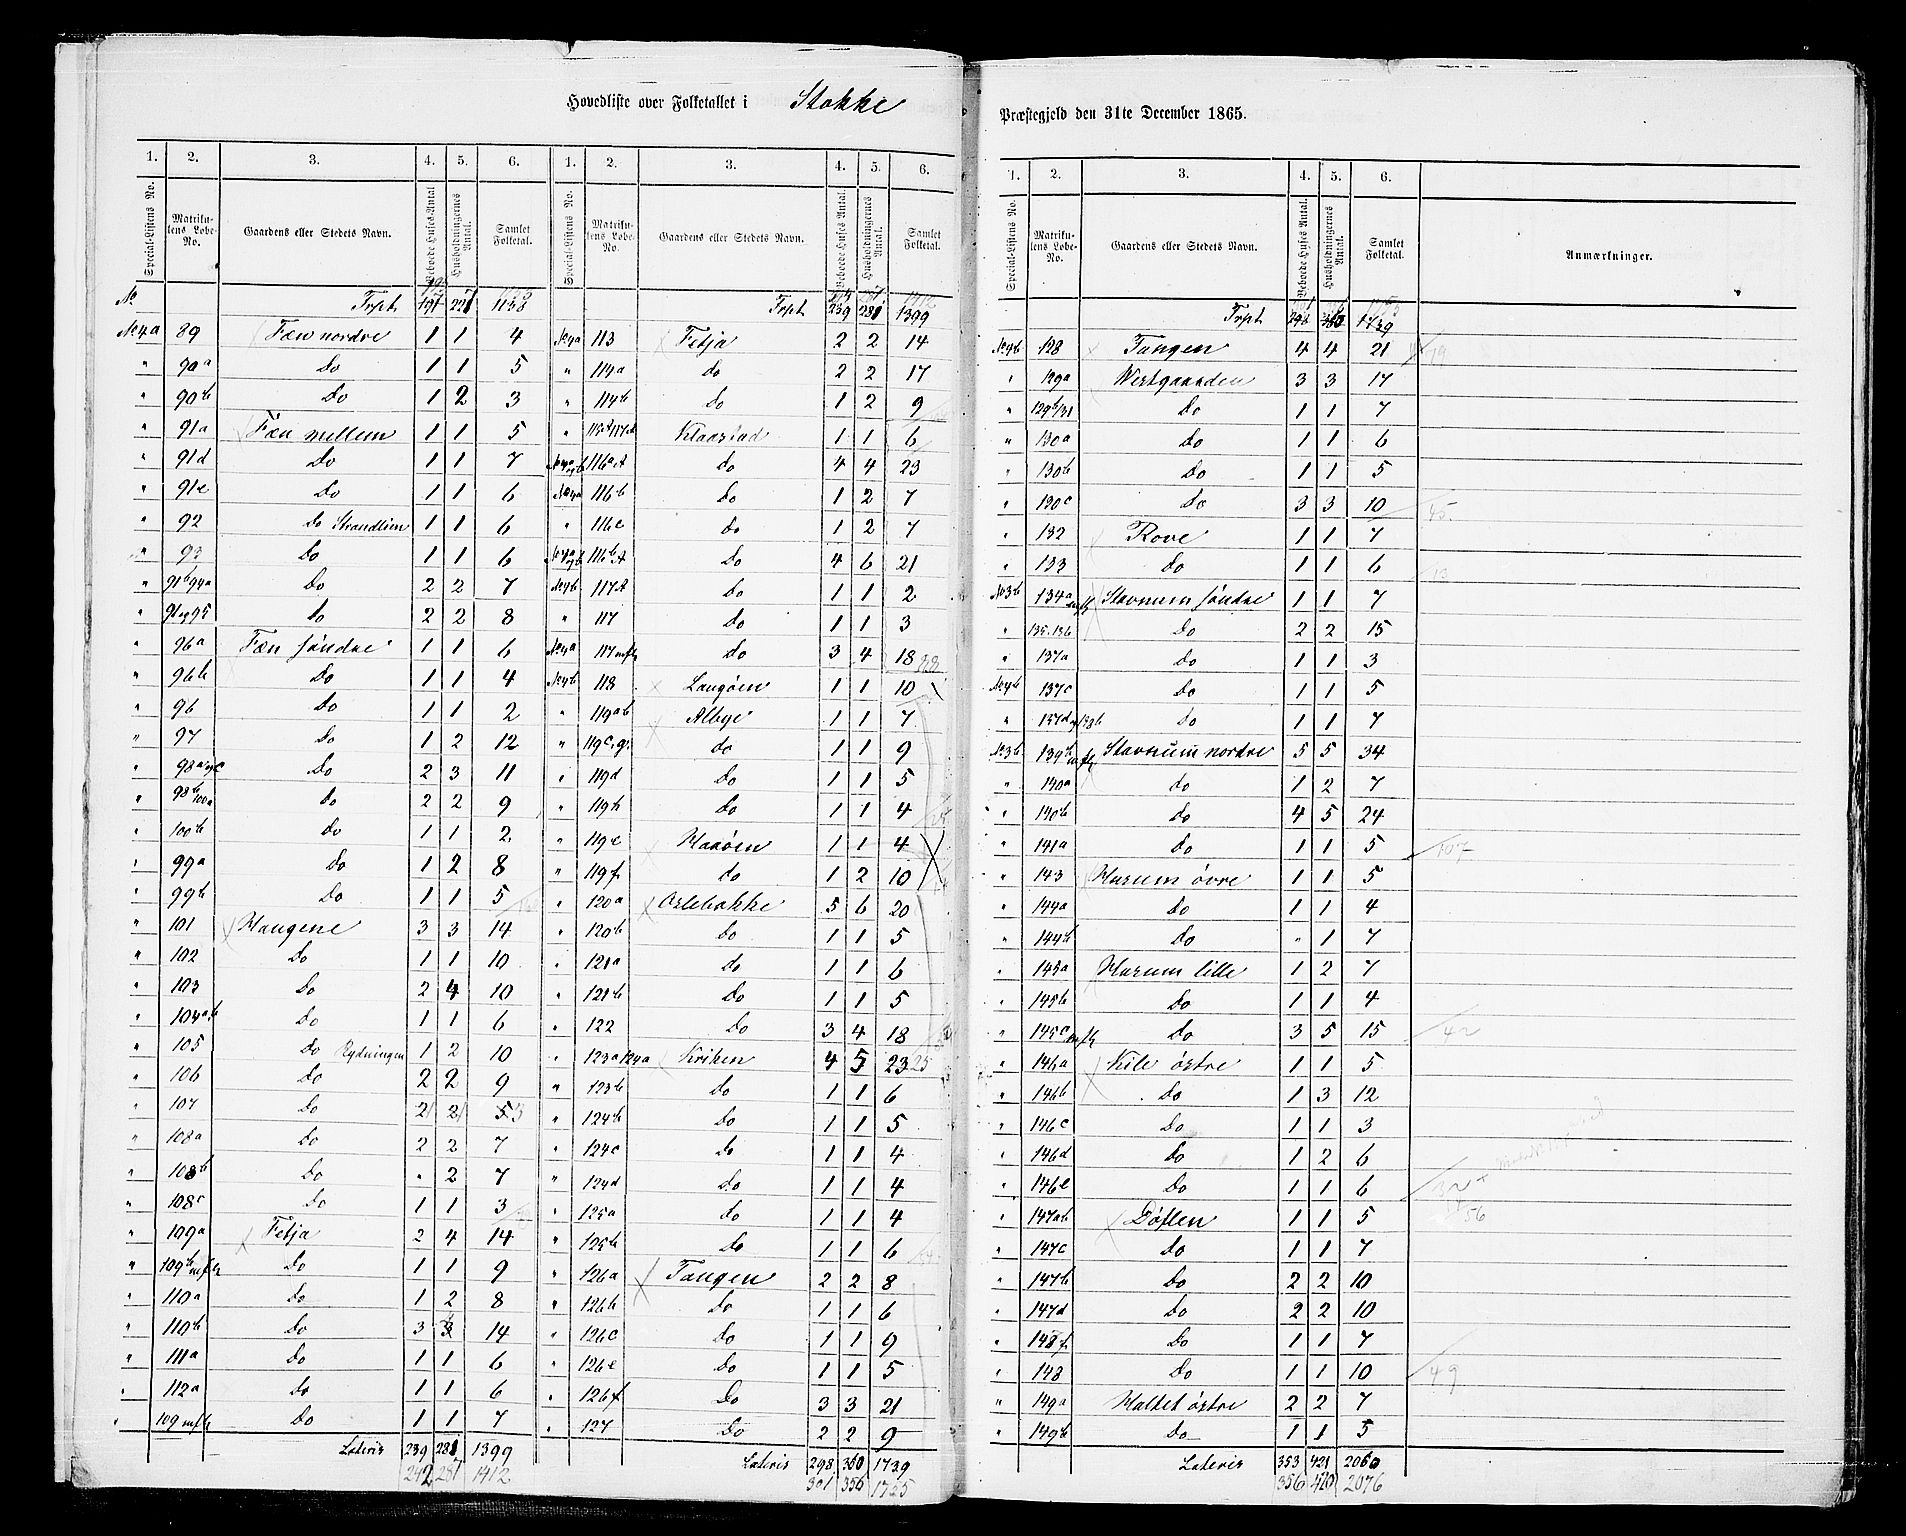 Hovedliste over Folketallet i Stokke
Præstegjeld den 31te December 1865.
1. 2. 3. 4. 5. 6. 1. 2. 3. 4. 5. 6.
Special-Listens No. Matrikulens Løbe-No. Gaardens eller Stedets Navn. Beboede Huses Antal Husholdningernes Antal. Samlet Folketal. Special-Listens No. Matrikulens Løbe-No. Gaardens eller Stedets Navn. Beboede Huses Antal. Husholdningernes Antal. Samlet Folketal.
Trpt 1138
No 4a 89 Fæn nordre 1 1 4
" 90a Do 1 1 5
" 90b Do 1 2 3
" 91a Fæn mellem 1 1 5
" 91d Do 1 1 7
" 91e Do 1 1 6
" 92 Do Strandlien 1 1 6
" 93 Do 1 1 6
" 91b 94a Do 2 2 7
" 95 Do 2 2 8
" 96a Fæn søndre 1 1 6
" 96b Do 1 1 4
" 96 Do 1 1 2
" 97 Do 1 2 12
" 98a Do 2 3 11
" 98b 100a Do 2 2 9
" 100b Do 1 1 2
" 99a Do 1 2 8
" 99b Do 1 1 5
" 101 Haugene 3 3 14
" 102 Do 1 1 10
" 103 Do 2 4 10
" 104a.b Do 1 1 6
" 105 Do Rydningen 1 2 10
" 106 Do 2 2 9
" 107 Do 2 2 5
" 108a Do 2 2 7
" 108b Do " 2 7
" 108c Do 1 1 3
" 109a Fetja 2 4 14
" 109b mfl Do 1 1 9
" 110a Do 1 2 8
" 110b Do 3 3 14
" 111a Do 1 1 6
" 112a Do 1 1 6
" 109 mfl Do 1 1 7
Lateris 239 281 1399
242 287 1412
Trpt 239 281 1399
No 4a 113 Fetja 2 2 14
" 114a do 2 2 17
" 114b Do 1 2 9
" Klaastad 1 1 6
116a A do 4 4 23
No 4a 116b Do 1 2 7
" 116c Do 1 2 7
116b A Do 4 6 21
No 4b 117A Do 1 1 2
" 117 Do 1 1 3
No 4a 117 mfl do 3 4 18
No 4b 118 Langøen 1 1 10
" 119ab Albye 1 1 7
" 119c.g. do 1 1 9
" 119d Do 1 1 5
" 119h Do 1 1 4
" 119e Haaøen 1 1 4
" 119f do 1 2 10
" 120a Orlebakke 5 6 20
" 120b Do 1 1 5
" 121a do 1 1 6
" 121b Do 1 1 5
" 122 Do 3 4 18
" 123a 124a Kriken 4 5 23 25
" 123b Do 1 1 6
" 124b Do 1 1 5
" 124c Do 1 1 4
" 124d Do 1 1 4
" 125a Do 1 1 4
" 125b Do 1 1 6
" 126a Tangen 2 2 8
" 126b Do 1 1 6
" 126c Do 1 1 9
" 126e Do 1 1 5
" 126f Do 3 3 21
" 127 Do 2 2 9
Lateris 298 360 1739
301 356 1755
1. 2. 3. 4. 5. 6.
Special-Listens No. Matrikulens Løbe-No. Gaardens eller Stedets Navn. Beboede Huses Antal. Husholdningernes Antal. Samlet Folketal. Anmærkninger.
Trpt 298 360 1739
No 4b 128 Tangen 4 4 21
" 129a Westgaarden 3 3 17
" 129b/31 Do 1 1 7
" 130a Do 1 1 6
" 130b Do 1 1 5
" 130c Do 3 3 10 45.
" 132 Rove 1 1 7
" 133 do 1 1 6
No 3b 134a mfl Stavnum søndre 1 1 7
" 135.136 Do 2 2 15
" 137a Do 1 1 3
No 4b 137c Do 1 1 5
" 137d Do 1 1 7
No 3b 139b mfl Stavnum nordre 5 5 34
" 140a do 1 2 7
" 140b Do 4 5 24
" 141a Do 1 1 5 107
" 143 Harum øvre 1 1 5
" 144a Do 1 1 4
" 144b Do " 1 7
" 145a Harum lille 1 2 7
" 145b Do 1 1 4
" 145c mfl Do 3 5 15 42
" 146a Kile østre 1 1 5
" 146b Do 1 3 12
" 146c Do 1 1 3
" 146d Do 1 2 6
" 146e Do 1 1 6 32
" 147ab Døflen 1 1 5 56
" 147c Do 1 1 7
" 147b Do 2 2 10
" 147d Do 2 2 10
" 148f Do 1 1 7
" 148 Do 1 1 10 49
" 149a Haltet østre 2 2 7
" 149b Do 1 1 5
Lateris 353 421 2060
356 420 2076